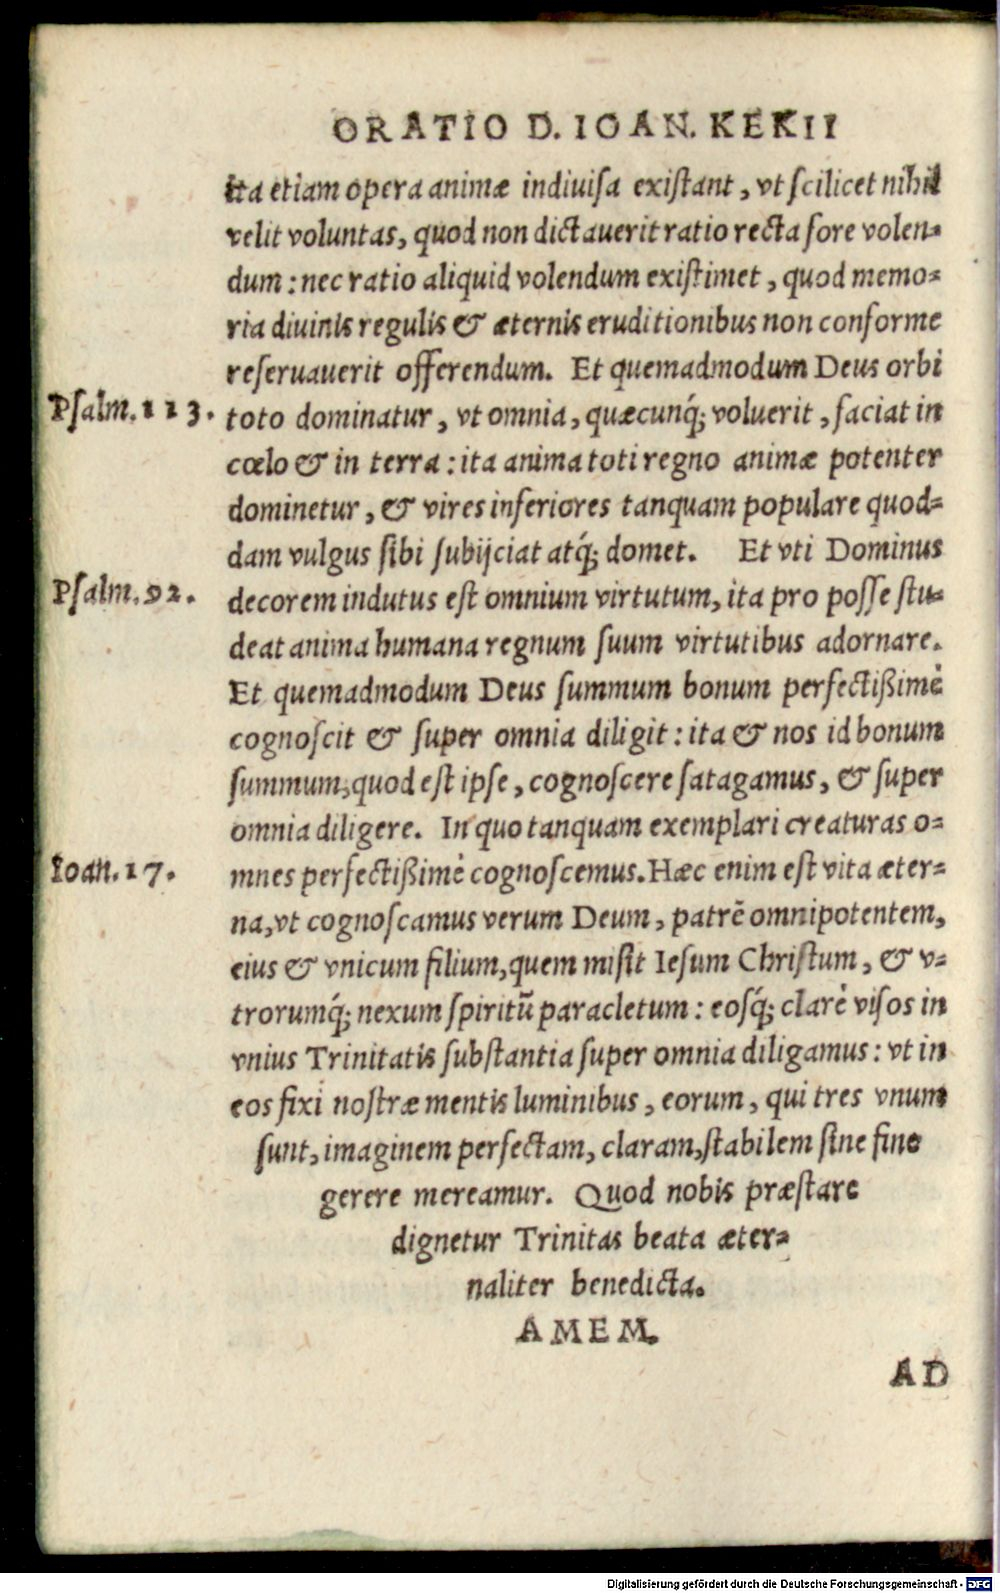 ORATIO D. IOAN. KEKII
ita etiam opera animæ indiuisa existant, vt scilicet nihil
velit voluntas, quod non dictauerit ratio recta fore volen-
dum: nec ratio aliquid volendum existimet, quod memo-
ria diuinis regulis & æternis eruditionibus non conforme
reseruauerit offerendum. Et quemadmodum Deus orbi
Psalm. 113. toto dominatur, vt omnia, quæcunq́; voluerit, faciat in
cœlo & in terra: ita anima toti regno animæ potenter
dominetur, & vires inferiores tanquam populare quod-
dam vulgus sibi subijciat atq́; domet. Et vti Dominus
Psalm. 92. decorem indutus est omnium virtutum, ita pro posse stu-
deat anima humana regnum suum virtutibus adornare.
Et quemadmodum Deus summum bonum perfectißimè
cognoscit & super omnia diligit: ita & nos id bonum
summum, quod est ipse, cognoscere satagamus, & super
omnia diligere. In quo tanquam exemplari creaturas o-
Ioan. 17. mnes perfectißimè cognoscemus. Hæc enim est vita æter-
na, vt cognoscamus verum Deum, patrē omnipotentem,
eius & vnicum filium, quem misit Iesum Christum, & v-
trorumq́; nexum spiritū paracletum: eosq́; clarè visos in
vnius Trinitatis substantia super omnia diligamus: vt in
eos fixi nostræ mentis luminibus, eorum, qui tres vnum
sunt, imaginem perfectam, claram, stabilem sine fine
gerere mereamur. Quod nobis præstare
dignetur Trinitas beata æter-
naliter benedicta.
AMEM.
AD
Digitalisierung gefördert durch die Deutsche Forschungsgemeinschaft - DFG